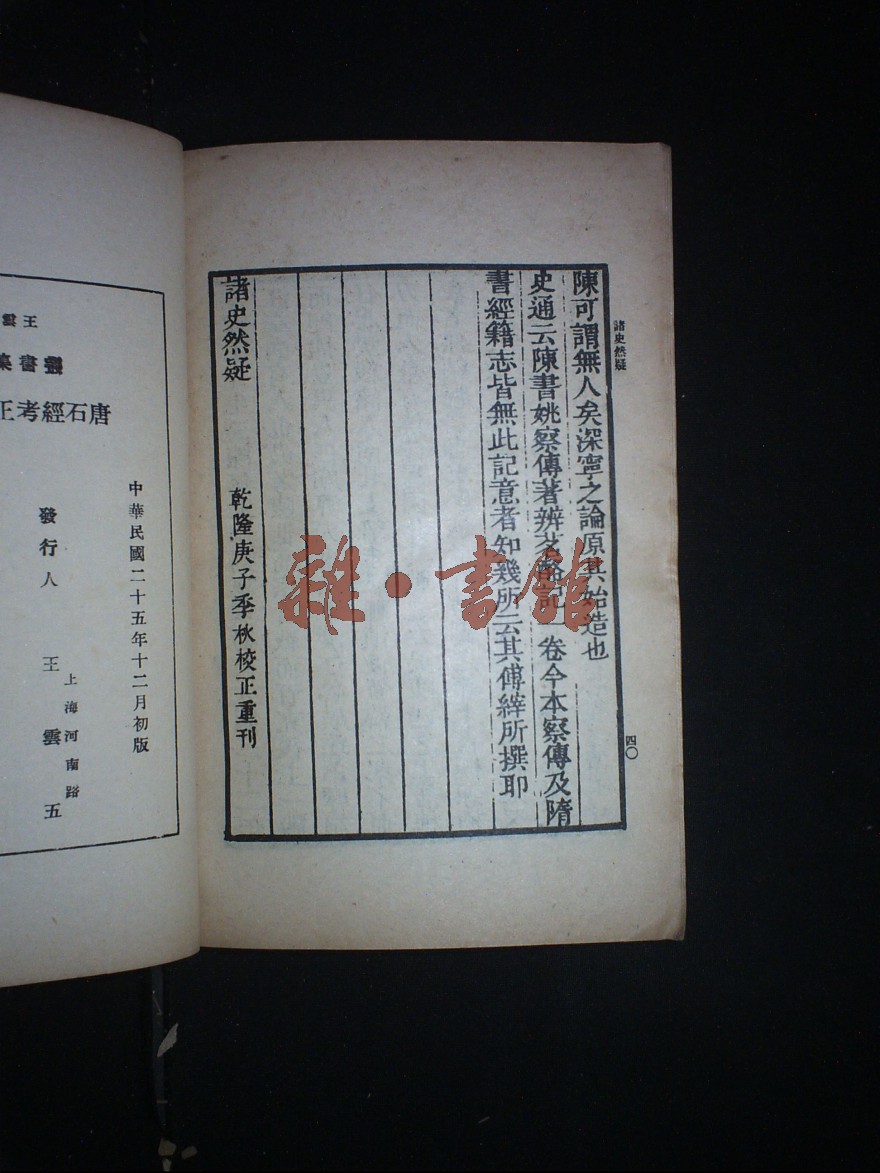 諸史然疑
陳可謂無人矣深寧之論原其始造也
史通云陳書姚察傳著辨茗酪記一卷今本察傳及隋
書經籍志皆無此記意者知幾所云其傅縡所撰耶
諸史然疑
乾隆庚子季秋校正重刊
四〇
雜·書館
中華民國二十五年十二月初版
上海河南路
發行人 王雲五
唐石經考正
王雲
書